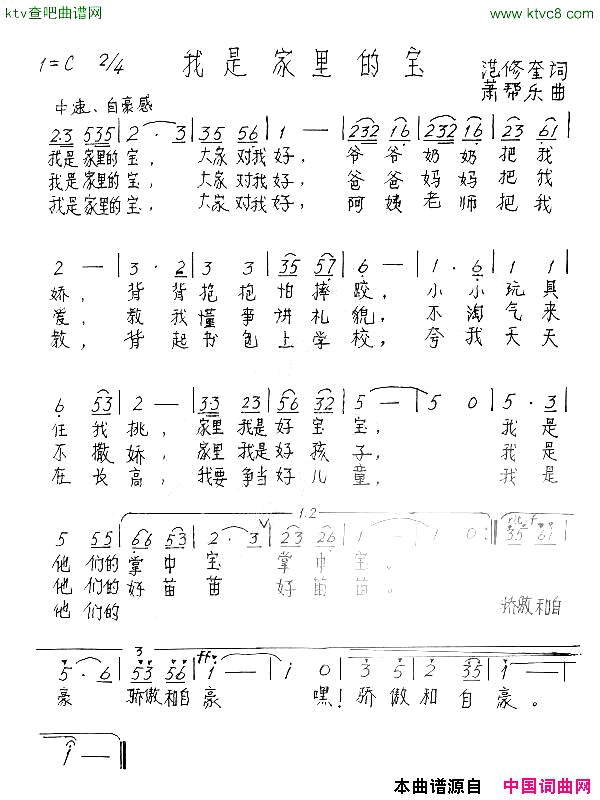 ktv查吧曲谱网 www.ktvc8.com
1=C 2/4 我是家里的宝 范修奎词
萧帮乐曲
中速、自豪感
2·3 535 | 2 - · 3 | 35 56 | 1 — | 232 16 | 232 16 | 23 23 | 61 |
我是家里的宝, 大家对我好, 爷爷奶奶把我
我是家里的宝, 大家对我好, 爸爸妈妈把我
我是家里的宝, 大家对我好, 阿姨老师把我
2 — | 3 · 2 | 3 3 | 35 57 | 6 — | 1 · 6 | 1 1 |
娇, 背背抱抱怕摔跤, 小小玩具
爱, 教我懂事讲礼貌, 不淘气来
教, 背起书包上学校, 夸我天天
6 53 | 2 — | 33 23 | 56 32 | 5 — | 5 0 | 5 · 3 |
任我挑, 家里我是好宝宝, 我是
不撒娇, 家里我是好孩子, 我是
在长高, 我要争当好儿童, 我是
1.2
5 55 | 66 53 | 2 · 3 | 23 26 | 1 — | 1 0 :‖ rit. f 35 61 |
他们的掌中宝 掌中宝。
他们的好苗苗 好苗苗。
他们的 骄傲和自
3 ff
5 · 6 | 53 56 | 1 — | i 0 | 3 5 | 2 i | i — | i — |
豪 骄傲和自豪 嘿!骄傲和自豪。
1 — ‖
本曲谱源自 中国词曲网